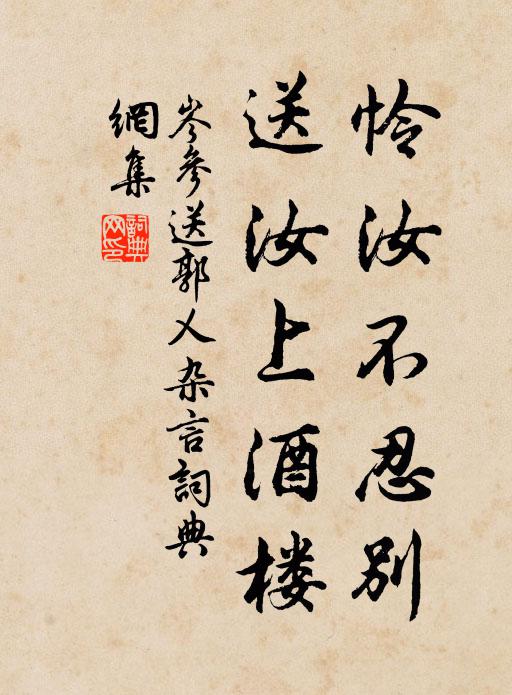 怜汝不忍别
送汝上酒楼
岑參送郭乂杂言詞典
網集
詞典网印